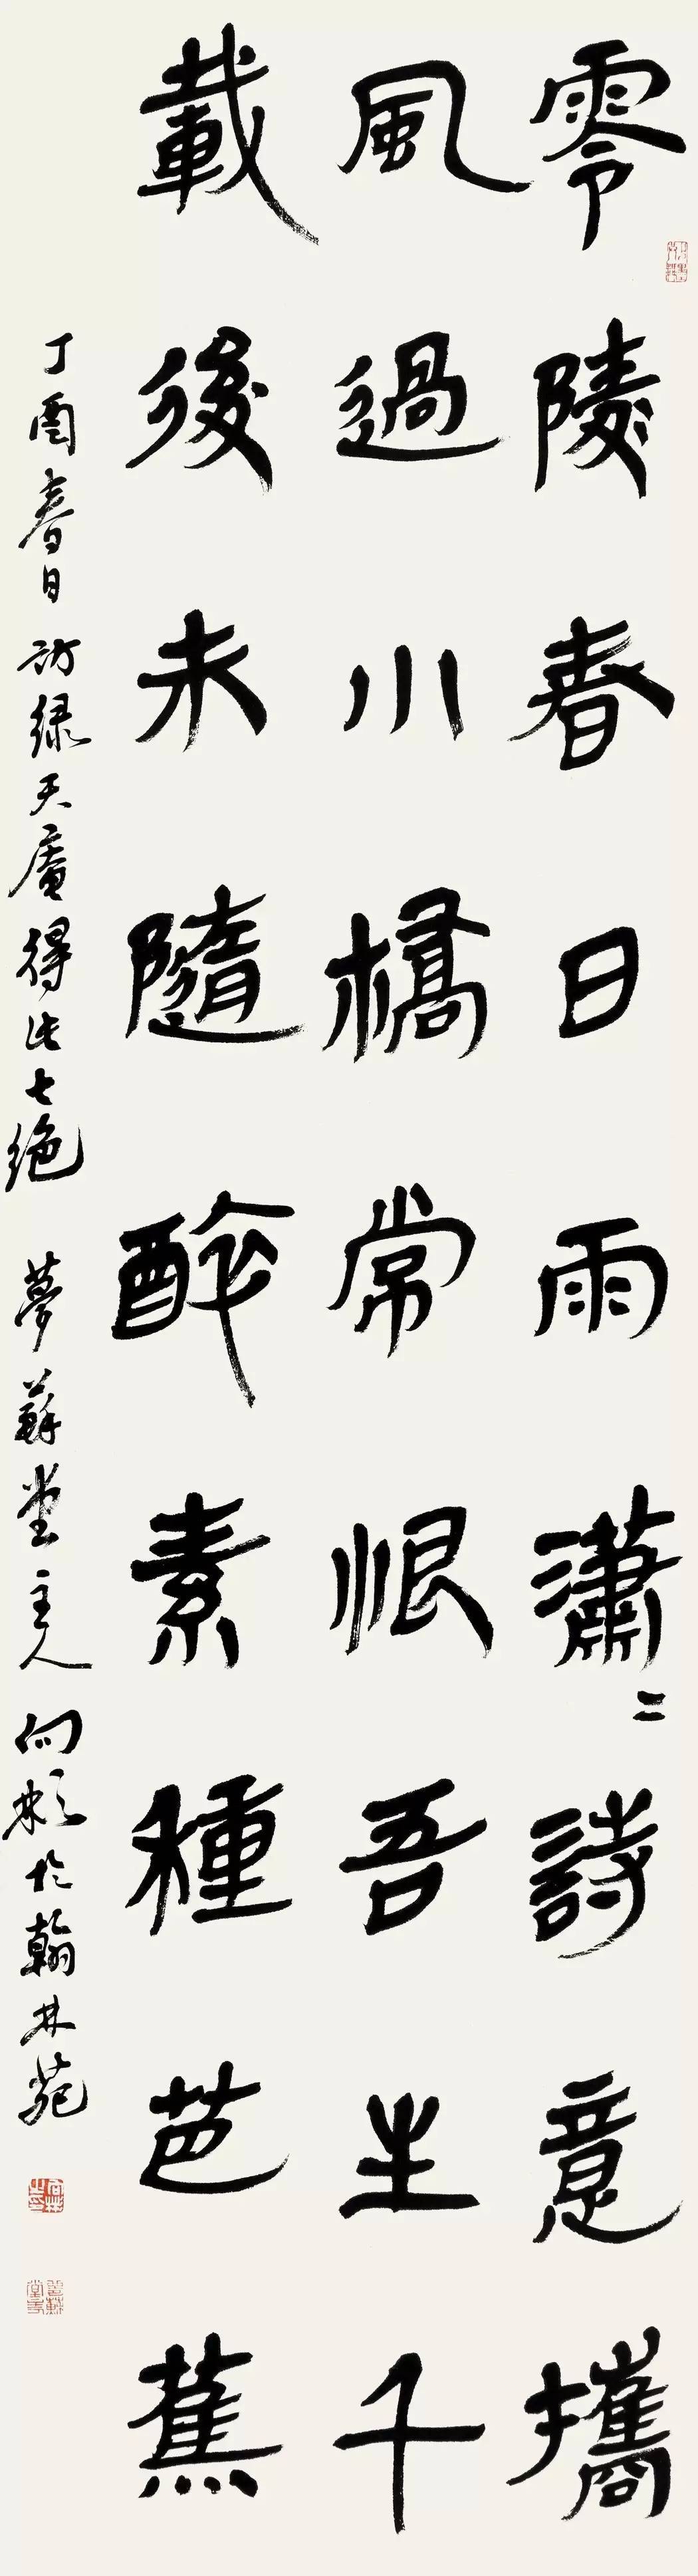 零陵春日雨瀟〻詩意攜
風過小橋常恨吾生千
載後未隨醉素種芭蕉
丁酉春日访绿天庵得此七绝 夢蘇堂主人 向彬於翰林苑